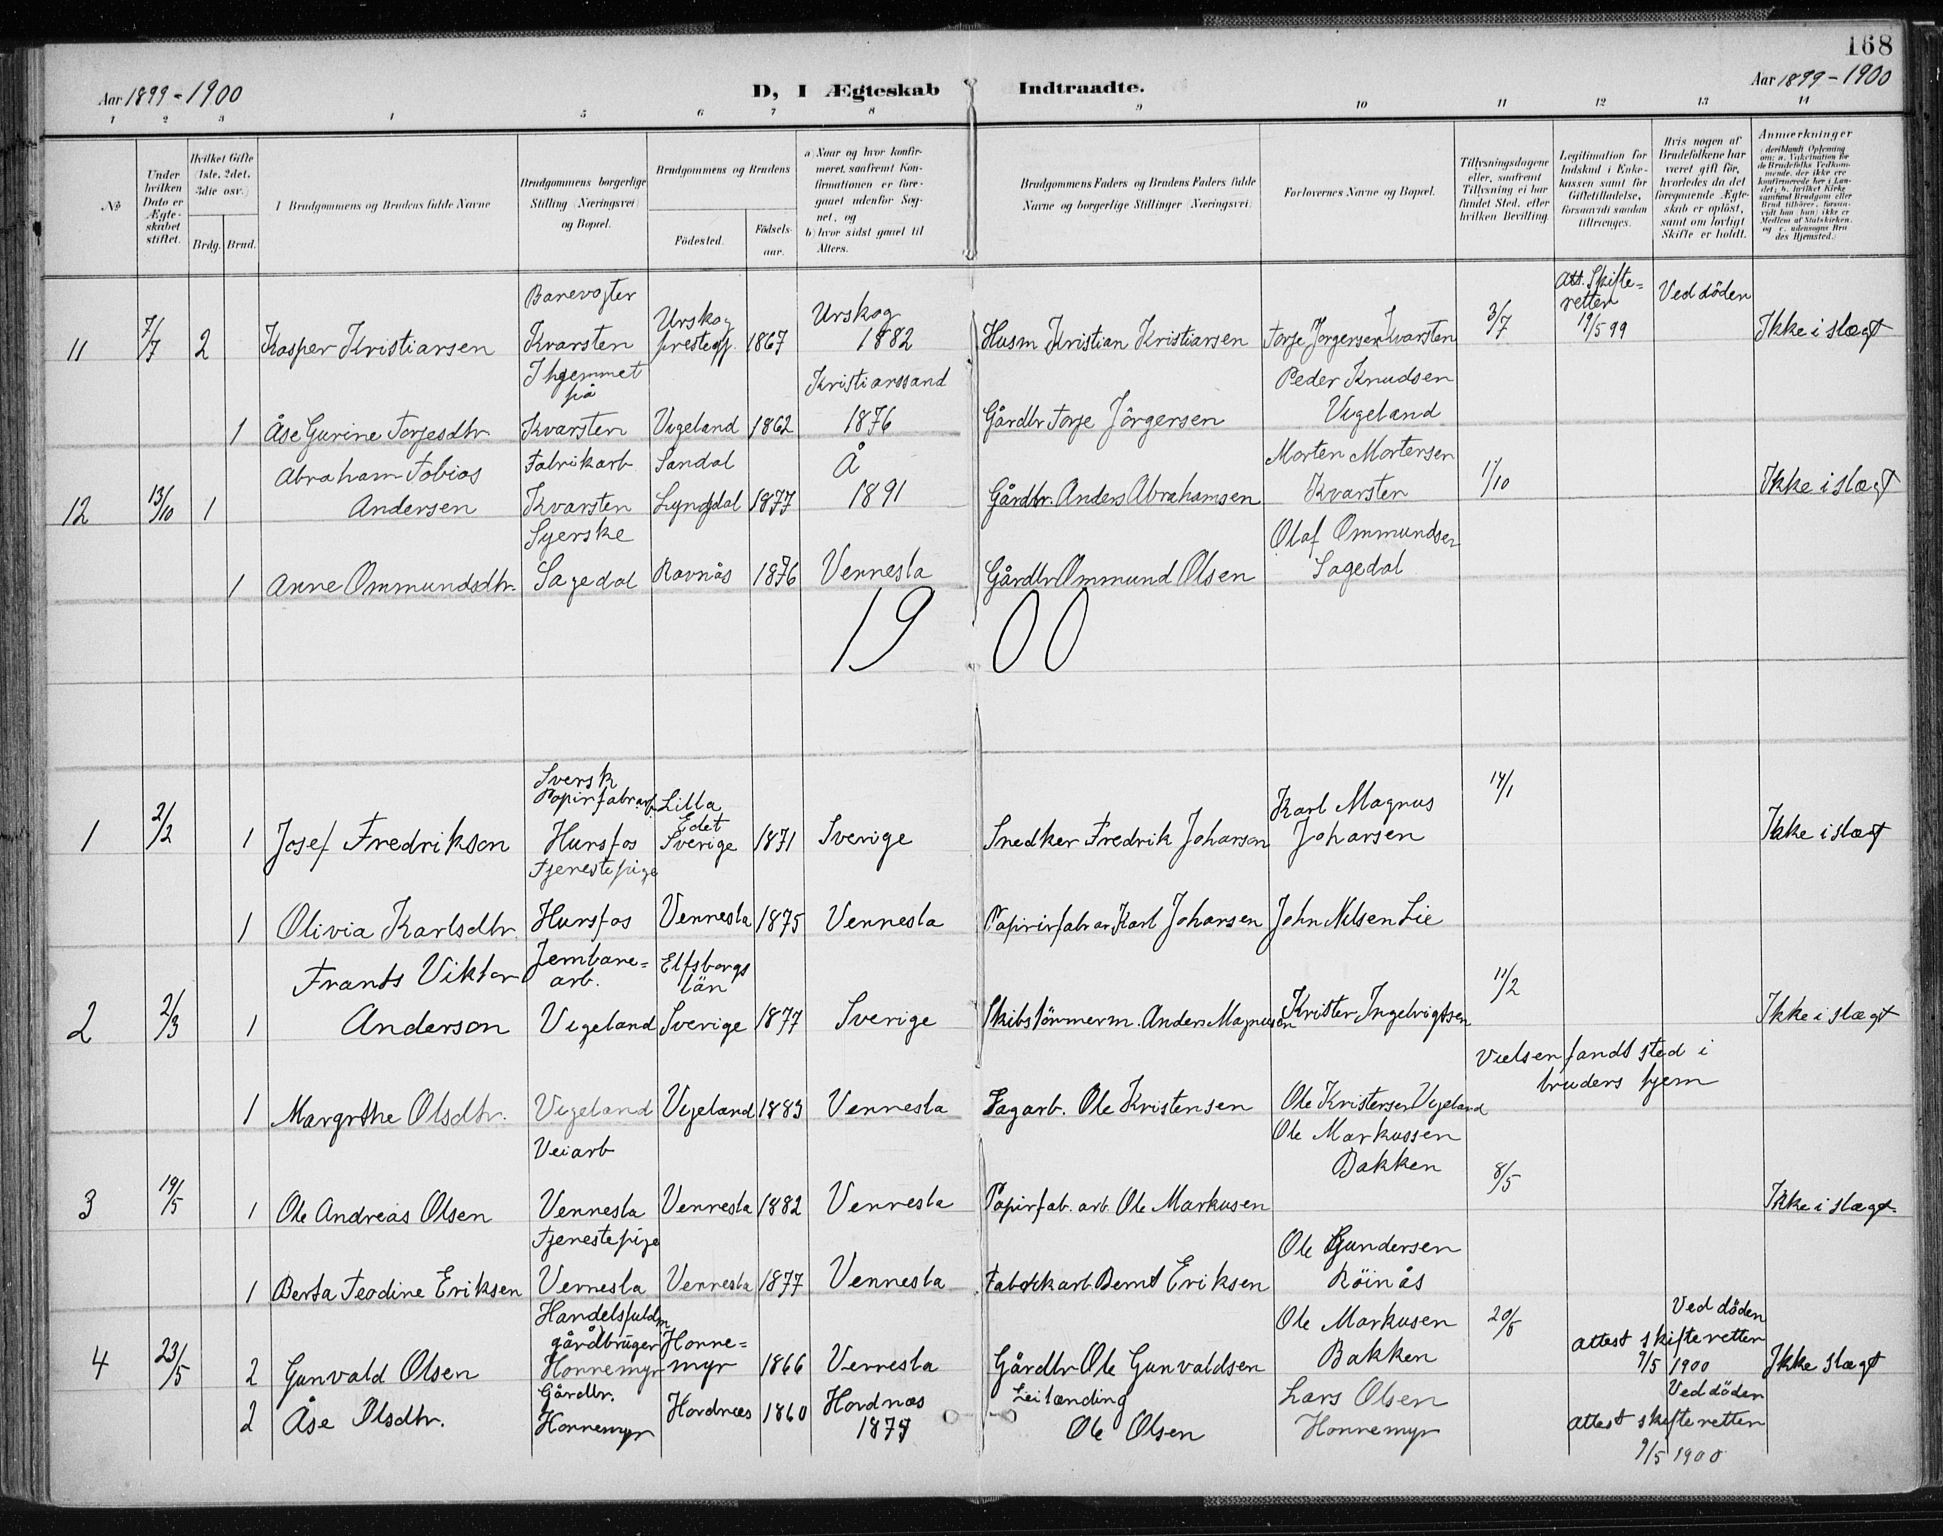 168
Aar 1899-1900
D, I Ægteskab Indtraadte.
Aar 1899-1900
1 2 3 4 5 6 7 8 9 10 11 12 13 14
No
Under hvilken Dato er Ægteskabet stiftet.
Hvilket Gifte (1ste, 2det, 3die osv.)
Brdg. Brud.
Brudgommens og Brudens fulde Navne
Brudgommens borgerlige Stilling (Næringsvei) og Bopæl.
Brudgommens og Brudens
Födested. Födselsaar.
a) Naar og hvor konfirmeret, saafremt Konfirmationen er foregaaet udenfor Sognet, og
b) hvor sidst gaaet til Alters.
Brudgommens Faders og Brudens Faders fulde Navne og borgerlige Stillinger (Næringsvei)
Forlovernes Navne og Bopæl.
Tillysningsdagene eller, saafremt Tillysning ei har fundet Sted, efter hvilken Bevilling.
Legitimation for Indskud i Enkekassen samt for Giftetilladelse, forsaavidt saadan tiltrænges.
Hvis nogen af Brudefolkene har været gift før, hvorledes da det foregaaende Ægteskab er oplöst, samt om lovligt Skifte er holdt.
Anmærkninger
11 7/7 2 Kasper Kristiansen Banevogter Kvarsten Urskog prestegj. 1867 Urskog 1882 Husm Kristian Kristiansen Torje Jörgensen Kvarsten 3/7 Att. Skifteretten 19/5 99 Ved döden Ikke i slægt
1 Åse Gurine Torjesdtr I hjemmet på Kvarsten Vigeland 1862 Kristianssand 1876 Gårdbr Torje Jörgensen Peder Knudsen Vigeland
12 13/10 1 Abraham Tobias Andersen Fabrikarb Kvarsten Sandal Lyngdal 1877 Å 1891 Gårdbr. Anders Abrahamsen Morten Mortensen Kvarsten 1/10 Ikke i slægt
1 Anne Ommundsdtr. Syerske Sagedal Ravnås 1876 Vennesla Gårdbr Ommund Olsen Olaf Ommundsen Sagedal
1900
1 2/2 1 Josef Fredrikson Svensk Papirfabr.arb Hunsfos Lilla Edet Sverige 1871 Sverige Snedker Fredrik Johanson Karl Magnus Johansen 14/1 Ikke i slægt
1 Olivia Karlsdtr. Tjenestepige Hunsfos Vennesla 1875 Vennesla Papirfabr ar Karl Johansen John Nilsen Lie
2 2/3 1 Frants Viktor Anderson Jernbanearb. Vigeland Elfsborgs län Sverige 1877 Sverige Skibstömmerm. Anders Magnuson Krister Ingebrigtsen 11/2 Ikke i slægt
Vielsen fandt sted i brudens hjem
1 Margrthe Olsdtr. Vigeland Vigeland 1883 Vennesla Sagarb. Ole Kristensen Ole Kristensen Vigeland
3 19/5 1 Ole Andreas Olsen Veiarb Vennesla Vennesla 1882 Vennesla Papirfab. arb. Ole Markusen Ole Markussen Bakken 8/5 Ikke i slægt.
1 Berta Teodine Eriksen Tjenestepige Vennesla Vennesla 1877 Vennesla Fabrikarb. Bernt Eriksen Ole Gundersen Röinås
4 23/5 2 Gunvald Olsen Handelsfuldm gårdbruger Honnemyr Honnemyr 1866 Vennesla Gårdbr Ole Gunvaldsen Ole Markusen Bakken 20/5 attest skifteretten 9/5 1900 Ved döden Ikke slægt
2 Åse Olsdtr. Gårdbr. Honnemyr Hordnæs 1860 Hordnæs 1877 Leilænding Ole Olsen Lars Olsen Honnemyr attest skifteretten 9/5 1900 Ved döden